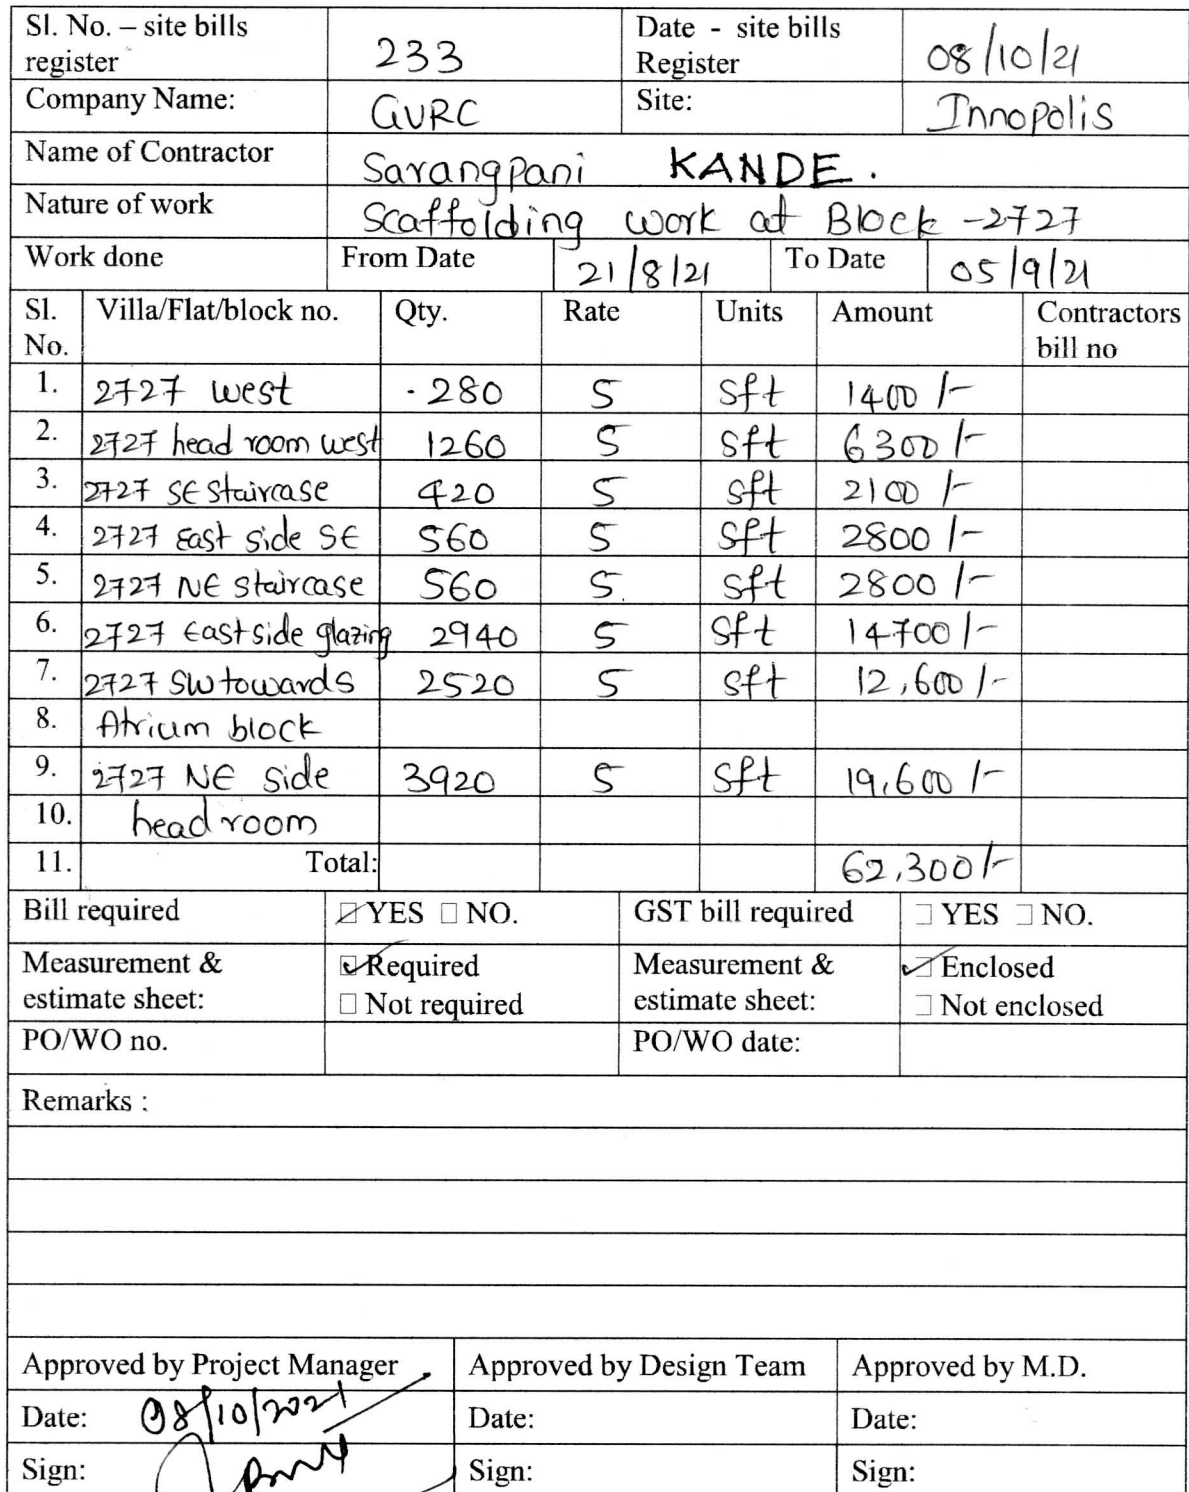 Sl. No. – site bills register 233 Date - site bills Register 08/10/21
Company Name: GVRC Site: Innopolis
Name of Contractor Sarangpani KANDE.
Nature of work Scaffolding work at Block -2727
Work done From Date 21/8/21 To Date 05/9/21
Sl. No. Villa/Flat/block no. Qty. Rate Units Amount Contractors bill no
1. 2727 west 280 5 sft 1400/-
2. 2727 head room west 1260 5 sft 6300/-
3. 2727 SE staircase 420 5 sft 2100/-
4. 2727 East side SE 560 5 sft 2800/-
5. 2727 NE staircase 560 5 sft 2800/-
6. 2727 East side glazing 2940 5 sft 14700/-
7. 2727 SW towards 2520 5 sft 12,600/-
8. Atrium block
9. 2727 NE side 3920 5 sft 19,600/-
10. head room
11. Total: 62,300/-
Bill required ☑ YES ☐ NO. GST bill required ☐ YES ☐ NO.
Measurement & estimate sheet: ☑ Required ☐ Not required Measurement & estimate sheet: ☑ Enclosed ☐ Not enclosed
PO/WO no. PO/WO date:
Remarks :
Approved by Project Manager Approved by Design Team Approved by M.D.
Date: 08/10/2021 Date: Date:
Sign: Sign: Sign: